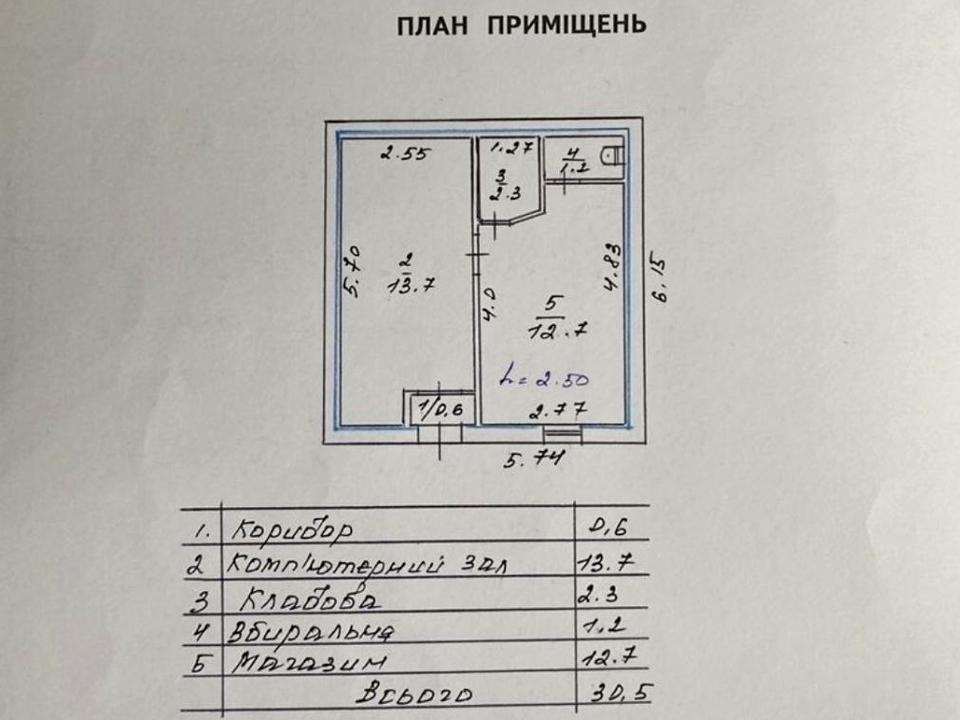 ПЛАН ПРИМІЩЕНЬ
2.55
1.27
4
1.2
3
2.3
5.70
2
13.7
4.83
6.15
4.0
5
12.7
h = 2.50
1/0,6
2.77
5.74
1. Коридор 0,6
2 Комп'ютерний зал 13.7
3 Кладова 2.3
4 Вбиральня 1,2
5 Магазин 12.7
Всього 30,5